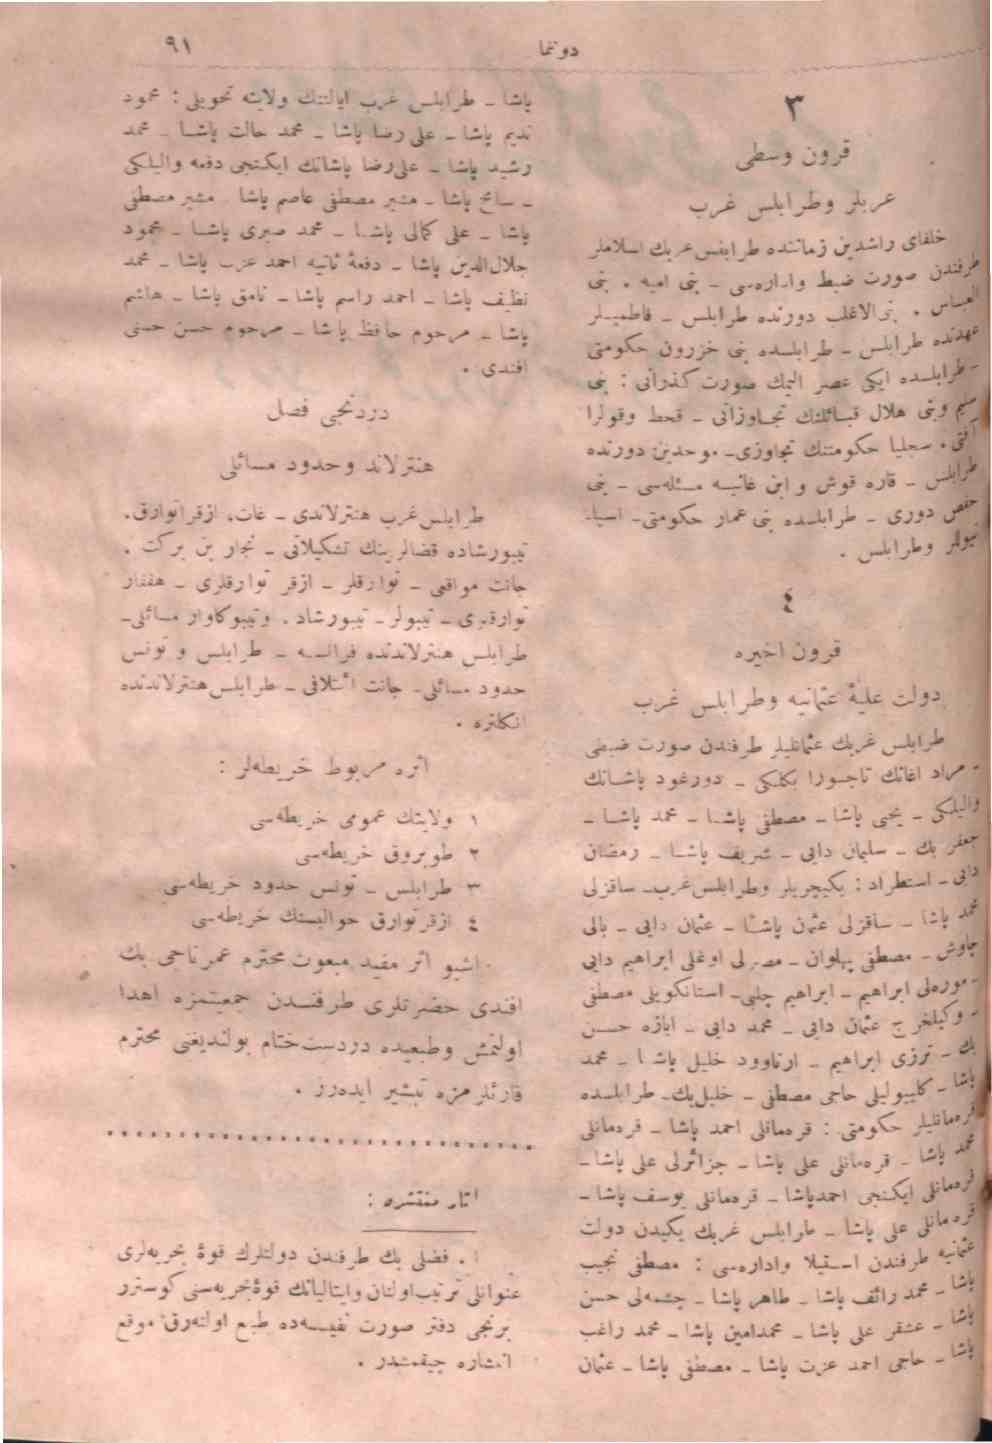 دوننما
٩١
٣
قرون وسطى
عربلر وطرابلس غرب
خلفاى راشدين زماننده طرابلس غربك اسلاملر
طرفندن صورت ضبط واداره‌سى ـ بنى اميه ، بنى
العباس ، بنى الاغلب دورنده طرابلس ـ فاطميلر
عهدنده طرابلس ـ طرابلسده بنى خزرون حكومتى
ـ طرابلسده ايكى عصر اليمك صورت كذرانى : بنى
سليم وبنى هلال قبائلنك تجاوزاتى ـ قحط وقولرا
آفتى ، سجليا حكومتنك تجاوزى ـ موحدين دورنده
طرابلس ـ قاره قوش و ابن غانيه مسئله‌سى ـ بنى
حفص دورى ـ طرابلسده بنى عمار حكومتى ـ اسپا‌ـ
نيوللر وطرابلس .
٤
قرون اخيره
دولت عليهٔ عثمانيه وطرابلس غرب
طرابلس غربك عثمانليلر طرفندن صورت ضبطى
ـ مراد اغانك تاجورا بكلكى ـ دورغود پاشانك
واليلكى ـ يحيى پاشا ـ مصطفى پاشا ـ محمد پاشا ـ
جعفر بك ـ سليمان دايى ـ شريف پاشا ـ رمضان
دايى ـ استطراد : يكيچريلر وطرابلس غرب ـ ساقزلى
محمد پاشا ـ ساقزلى عثمن پاشا ـ عثمان دايى ـ بالى
چاوش ـ مصطفى پهلوان ـ مصرلى اوغلى ابراهيم دايى
ـ موره‌لى ابراهيم ـ ابراهيم چلبى ـ استانكويلى مصطفى
ـ وكيلخرج عثمان دايى ـ محمد دايى ـ ابازه حسن
بك ـ ترزى ابراهيم ـ ارناوود خليل پاشا ـ محمد
پاشا ـ كليبوليلى حاجى مصطفى ـ خليل بك ـ طرابلسده
قره‌مانليلر حكومتى : قره‌مانلى احمد پاشا ـ قره‌مانلى
محمد پاشا ـ قره‌مانلى على پاشا ـ جزائرلى على پاشا ـ
قره‌مانلى ايكنجى احمدپاشا ـ قره‌مانلى يوسف پاشا ـ
قره‌مانلى على پاشا ـ طرابلس غربك يكيدن دولت
عثمانيه طرفندن استيلا واداره‌سى : مصطفى نجيب
پاشا ـ محمد رائف پاشا ـ طاهر پاشا ـ چشمه‌لى حسن
پاشا ـ عشقر على پاشا ـ محمدامين پاشا ـ محمد راغب
پاشا ـ حاجى احمد عزت پاشا ـ مصطفى پاشا ـ عثمان
پاشا ـ طرابلس غرب ايالتنك ولايته تحويلى : محمود
نديم پاشا ـ على رضا پاشا ـ محمد حالت پاشا ـ محمد
رشيد پاشا ـ على‌رضا پاشانك ايكنجى دفعه واليلكى
ـ سامح پاشا ـ مشير مصطفى عاصم پاشا ـ مشير مصطفى
پاشا ـ على كمالى پاشا ـ محمد صبرى پاشا ـ محمود
جلال‌الدين پاشا ـ دفعهٔ ثانيه احمد عزت پاشا ـ محمد
نظيف پاشا ـ احمد راسم پاشا ـ نامق پاشا ـ هاشم
پاشا ـ مرحوم حافظ پاشا ـ مرحوم حسن حسنى
افندى .
دردنجى فصل
هنترلاند وحدود مسائلى
طرابلس غرب هنترلاندى ـ غات، ازقرتوارق،
تيبورشاده قضالرينك تشكيلاتى ـ نجار بن بركت .
جانت مواقعى ـ توارقلر ـ ازقر توارقلرى ـ هففار
توارقلرى ـ تيبولر ـ تيبورشاد ، وتيبوكاوار مسائلى ـ
طرابلس هنترلاندنده فرانسه ـ طرابلس و تونس
حدود مسائلى ـ جانت ائتلافى ـ طرابلس هنترلاندنده
انكلتره .
اثره مربوط خريطه‌لر :
١ ولايتك عمومى خريطه‌سى
٢ طوبروق خريطه‌سى
٣ طرابلس ـ تونس حدود خريطه‌سى
٤ ازقرتوارق حواليسنك خريطه‌سى
اشبو اثر مفيد مبعوث محترم عمرناجى بك
افندى حضرتلرى طرفندن جمعيتمزه اهدا
اولنمش وطبعيده دردست ختام بولنديغنى محترم
قارئلرمزه تبشير ايده‌رز .
اثار منتشره :
ا . فضلى بك طرفندن دولتلرك قوهٔ بحريه‌لرى
عنوانلى ترتيب‌اولنان وايتاليانك قوهٔبحريه‌سنى كوسترر
برنجى دفتر صورت نفيسه‌ده طبع اولنه‌رق موقع
انتشاره چيقمشدر .